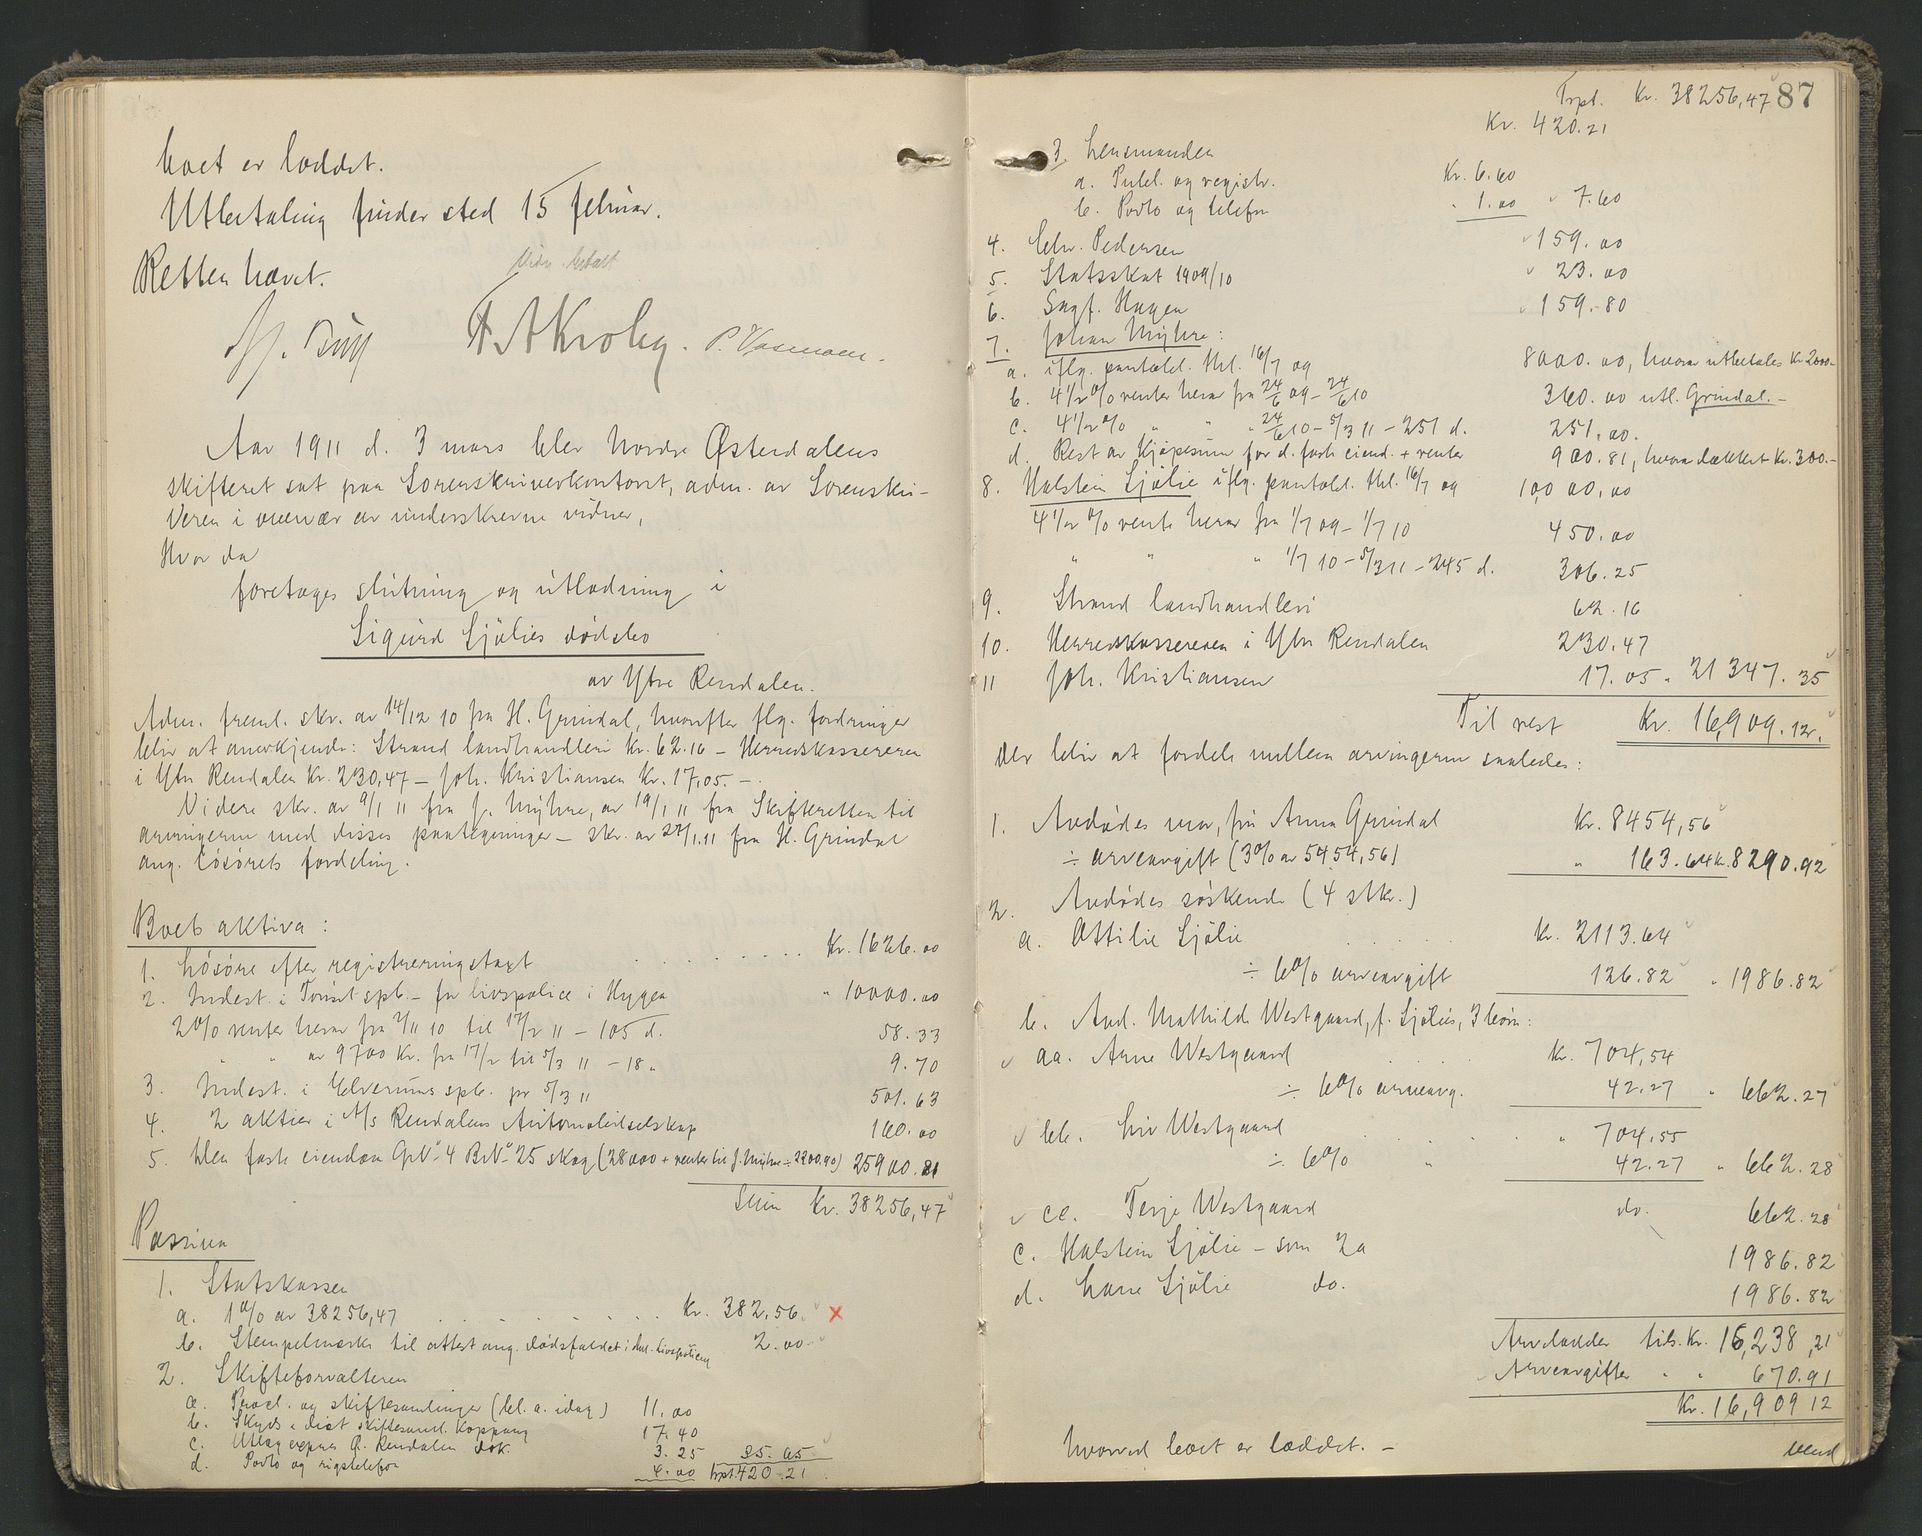 boet er loddet.
Utbetaling finder sted 15 februar.
Retten hævet.
P. Vasmoen.
Aar 1911 d. 3 mars blev Nordre Østerdalens
skifteret sat paa Sorenskriverkontoret, adm. av Sorenskri-
veren i overvær av underskrevne vidner,
Hvor da
foretages slutning og utlodning i
Sigurd Sjølies dødsbo
av Ytre Rendalen.
Adm. freml. skr. av 14/12 10 fra H. Grindal, hvorefter flg. fordringer
blir at anerkjende: Strand landhandleri Kr. 62.16 – Herredskassereren
i Ytre Rendalen Kr. 230,47 – Joh. Kristiansen Kr. 17,05 –.
Videre skr. av 9/1 11 fra J. Myhre, av 19/1 11 fra Skifteretten til
arvingerne med disses paategninger – skr. av 27/1.11 fra H. Grindal
ang. løsørets fordeling.
Boets aktiva:
1. Løsøre efter registreringstaxt . . . . . . . . Kr. 1626.00
2. Indest. i Trysil spb. – for livspolice i Hygea " 10000.00
2 % renter herav fra 2/11 10 til 17/2 11 – 105 d. 58.33
" " av 9700 Kr. fra 17/2 til 5/3 11 – 18 " 9.70
3. Indest. i Elverums spb. pr 5/3 11 501.63
4. 2 aktier i A/s Rendalens Automobilselskap 160.00
5. Den faste eiendom GrNº 4 BrNº 25 skog (28000 + renter til J. Myhre ÷ 2200.90) 25900.81
Sum Kr. 38256,47
Passiva
1. Statskassen
a. 1 % av 38256,47 . . . . . . . Kr. 382,56. x
b. Stempelmerke til attest ang. dødsfaldet i anl. livspolicen 2.00
2. Skifteforvalteren
a. Procl. og skiftesamlinger (bl. a. idag) 11.00
b. Skyds & diæt skiftesaml. Koppang 17.40
c. Utlæg Ø. Rendalen dok. 3.25 35.65
d. Porto og rigstelefon 4.00 trpt. 420.21
Trpt. Kr. 38256,47 87
Kr. 420.21
3. Lensmanden
a. Publ. og registr. Kr. 6.60
b. Porto og telefon " 1.00 " 7.60
4. Chr. Pedersen 159.00
5. Statsskat 1909/10 23.00
6. Sagf. Hagen 159.80
7. Johan Myhre:
a. iflg. pantobl. thl. 16/7 09 8000.00, hvorav utbetales Kr 2000.–
b. 4 1/2 % renter herav fra 24/6 09 – 24/6 10 360.00 utl. Grindal. –
c. 4 1/2 % " " " 24/6 10 – 5/3 11 – 251 d. 251.00.
d. Rest av Kjøpesum for d. faste eiend. + renter 900.81, hvorav dækket Kr. 300.–
8. Halsten Sjølie iflg. pantobl. thl. 16/7 09 10,000,00
4 1/2 % rente herav fra 1/7 09 – 1/7 10 450.00
" " " 1/7 10 – 5/3 11 – 245 d. 306.25
9. Strand landhandleri 62.16
10. Herredskassereren i Ytre Rendalen 230.47
11 Joh. Kristiansen 17.05 " 21347.35
Til rest Kr. 16,909.12.
Der blir at fordele mellem arvingerne saaledes:
1. Avdødes mor, fru Anna Grindal Kr. 8454,56
÷ arveavgift (3% av 5454,56) " 163.64 Kr. 8290.92
2. Avdødes søskende (4 stkr.)
a. Ottilie Sjølie . . . . . Kr. 2113.64
÷ 6% arveavgift 126.82 " 1986.82
b. Avd. Mathilde Westgaard, f. Sjølies, 3 børn:
aa. Arne Westgaard . . . . Kr. 704,54
÷ 6% arveavg. 42.27 " 662.27
bb. Liv Westgaard . . . . . " 704,55
÷ 6% " 42.27 " 662.28
cc. Terje Westgaard do. 662.28
c. Halstein Sjølie – som 2a 1986.82
d. Lane Sjølie do. 1986.82
Arvelodder tils. Kr. 16,238,21
Arveavgifter " " 670.91
Kr. 16,909 12
hvorved boet er loddet. –
Vend